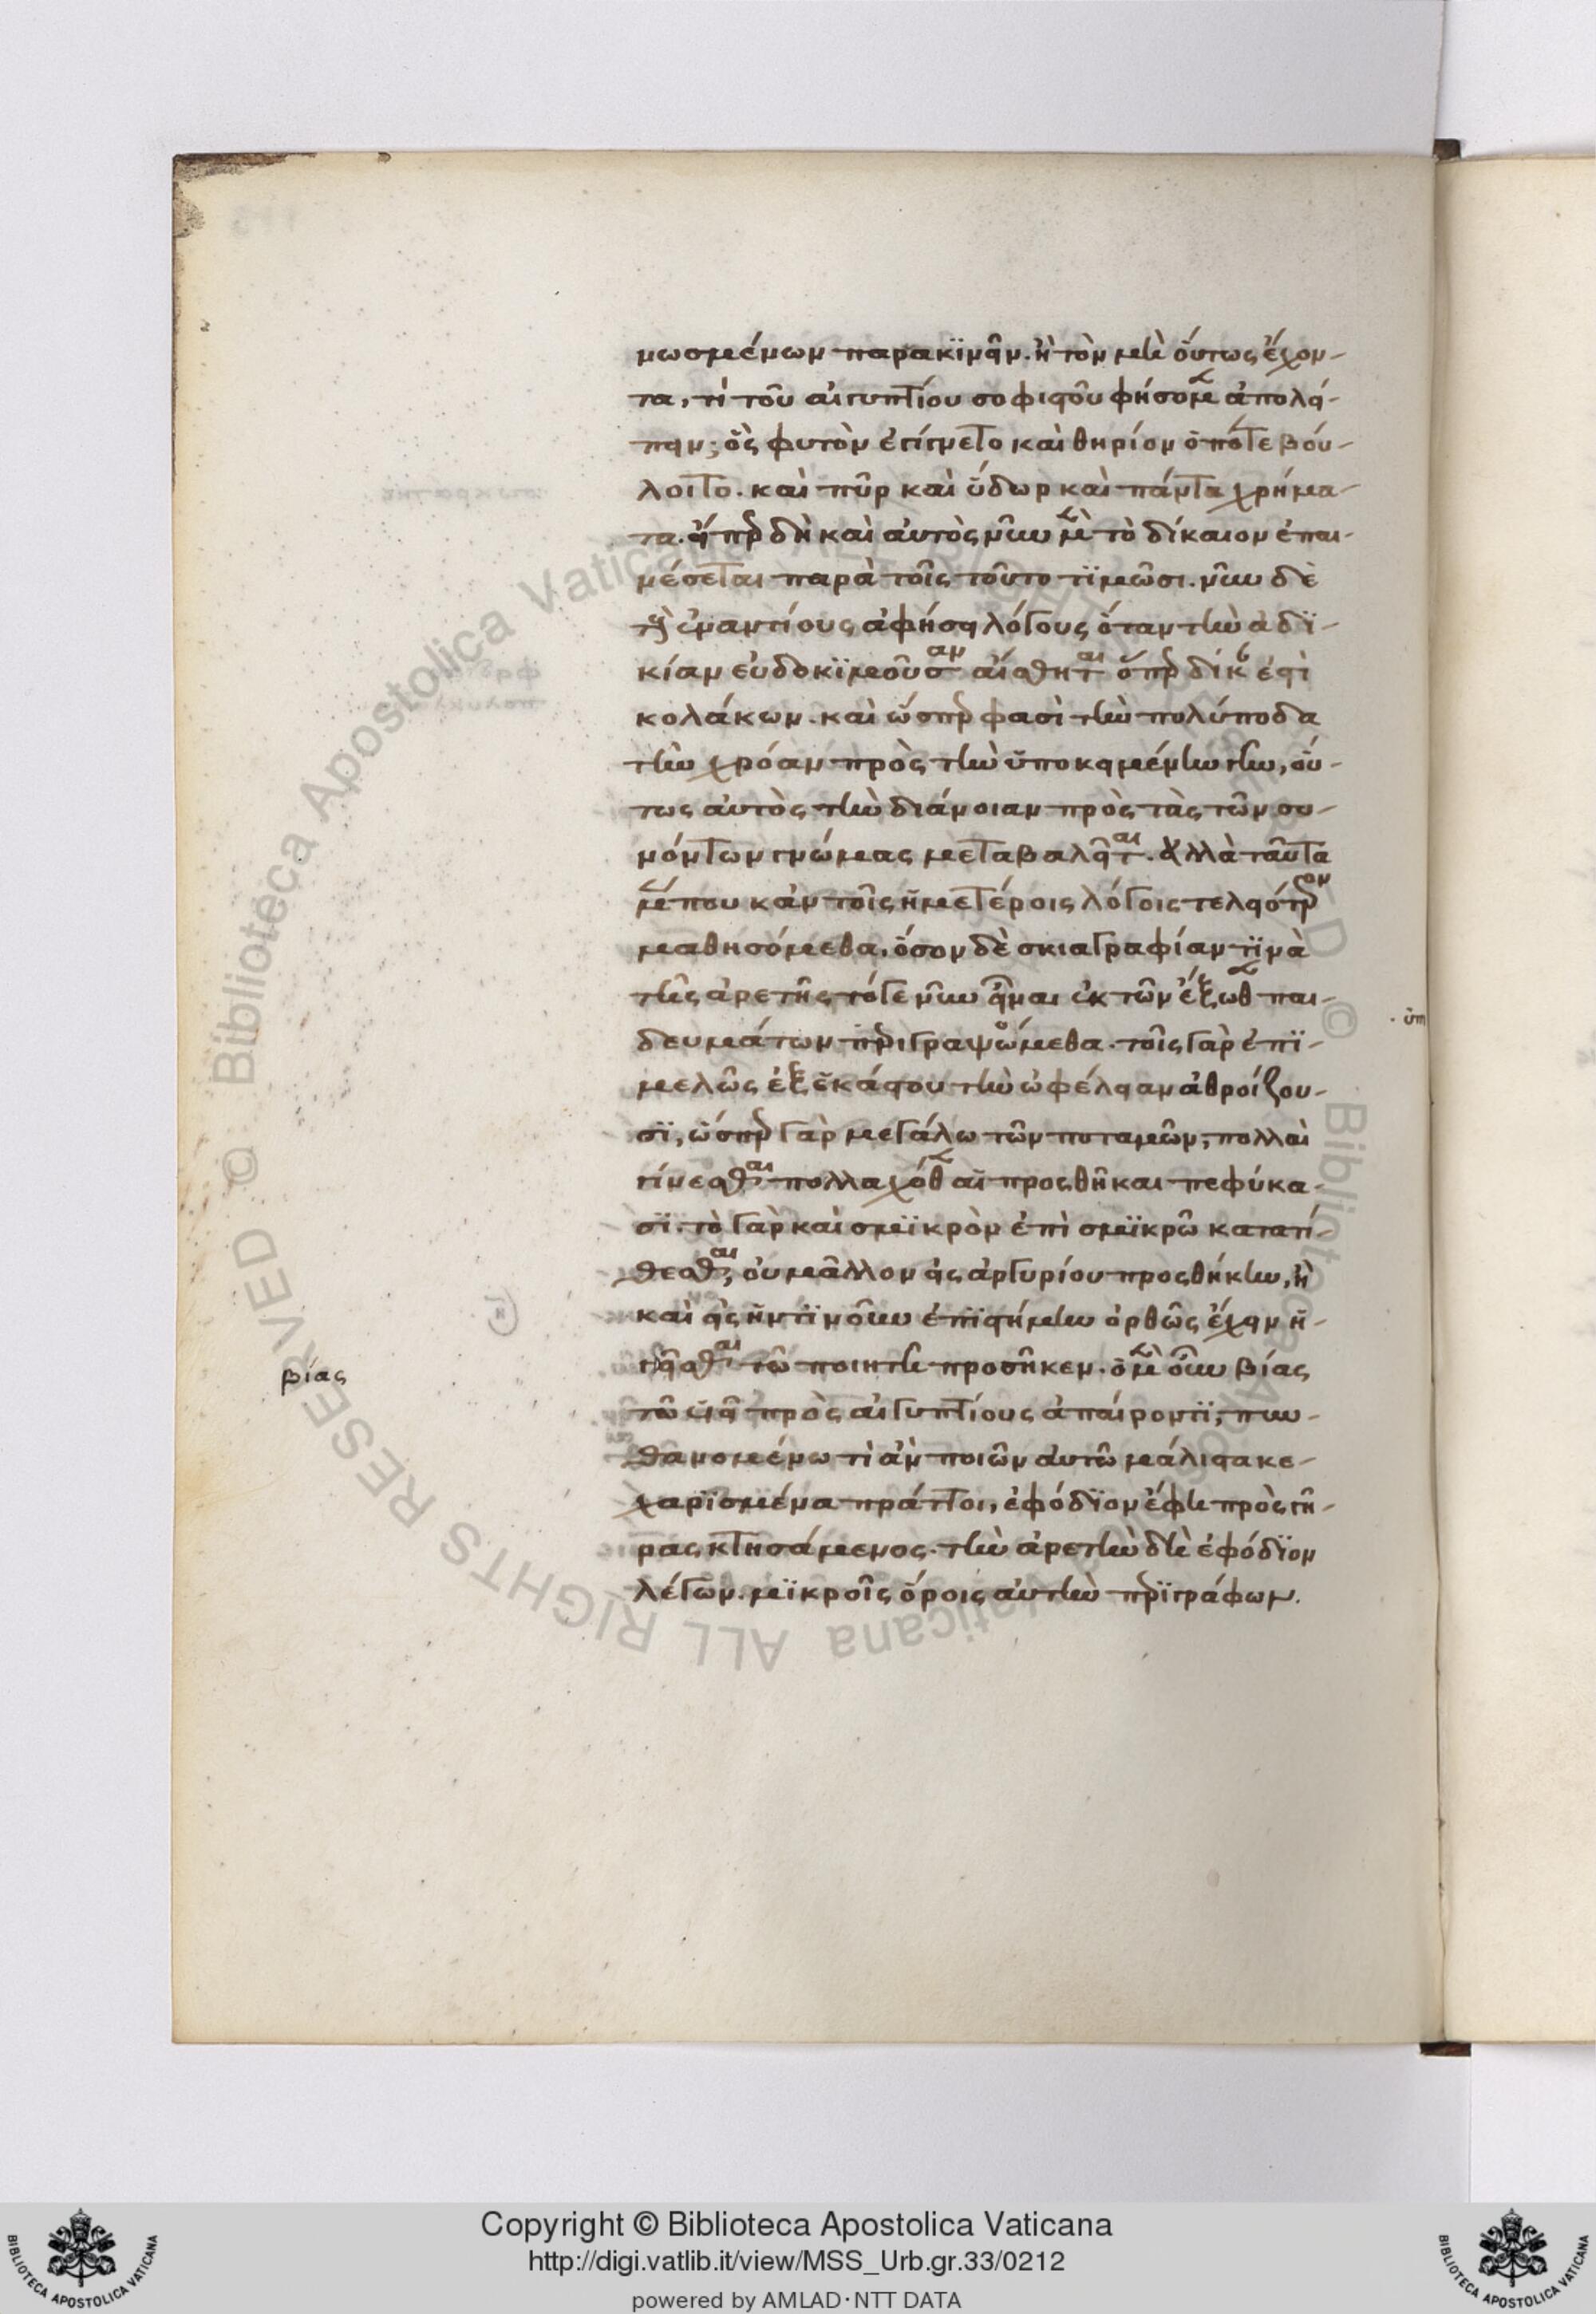 νωσμένων παρακϊνεῖν. ἢ τὸν μὲν οὕτως ἔχον-
τα, τί τοῦ αἰγυπτίου σοφιστοῦ φήσομεν ἀπολεί-
πειν; ὃς φυτὸν ἐγίγνετο καὶ θηρίον ὁπότε βού-
λοιτο. καὶ πῦρ καὶ ὕδωρ καὶ πάντα χρήμα-
τα. εἴπερ δὴ καὶ αὐτὸς νῦν μὲν τὸ δίκαιον ἐπαι-
νέσεται παρὰ τοῖς τοῦτο τϊμῶσι. νῦν δὲ
τοὺς ἐναντίους ἀφήσει λόγους ὅταν τὴν ἀδϊ-
κίαν εὐδοκϊμοῦσαν αἴσθηται ὅπερ δίκης ἐστὶ
κολάκων. καὶ ὥσπερ φασὶ τὴν πολύποδα
τὴν χρόαν πρὸς τὴν ὑποκειμένην γῆν, οὕ-
τως αὐτὸς τὴν διάνοιαν πρὸς τὰς τῶν συ-
νόντων γνώμας μεταβαλεῖται. ἀλλὰ ταῦτα
μέν που κἀν τοῖς ἡμετέροις λόγοις τελειότερον
μαθησόμεθα, ὅσον δὲ σκιαγραφίαν τϊνὰ
τῆς ἀρετῆς τότε νῦν εἶναι ἐκ τῶν ἔξωθεν παι-
δευμάτων περιγραψώμεθα. τοῖς γὰρ ἐπϊ-
μελῶς ἐξ ἑκάστου τὴν ὠφέλειαν ἀθροίζου-
σϊ, ὥσπερ γὰρ μεγάλω τῶν ποταμῶν, πολλαὶ
γίνεσθαι πολλαχόθεν αἱ προσθῆκαι πεφύκα-
σϊ. τὸ γὰρ καὶ σμϊκρὸν ἐπὶ σμϊκρῶ κατατί-
θεσθαι, οὐ μᾶλλον εἰς ἀργυρίου προσθήκην, ἢ
καὶ εἰς ἥντϊνοῦν ἐπϊστήμην ὀρθῶς ἔχειν ἡ-
γεῖσθαι τῶ ποιητῆ προσῆκεν. ὁ μὲν οὖν βίας
τῶ υἱεῖ πρὸς αἰγυπτίους ἀπαίροντϊ, πυν-
θανομένω τὶ ἂν ποιῶν αὐτῶ μάλιστα κε-
χαρϊσμένα πράττοι, ἐφόδϊον ἔφη πρὸς γῆ-
ρας κτησάμενος. τὴν ἀρετὴν δὴ ἐφόδϊον
λέγων. μϊκροῖς ὅροις αὐτὴν περϊγράφων.
βίας
Copyright © Biblioteca Apostolica Vaticana
http://digi.vatlib.it/view/MSS_Urb.gr.33/0212
powered by AMLAD·NTT DATA
BIBLIOTECA APOSTOLICA VATICANA
BIBLIOTECA APOSTOLICA VATICANA